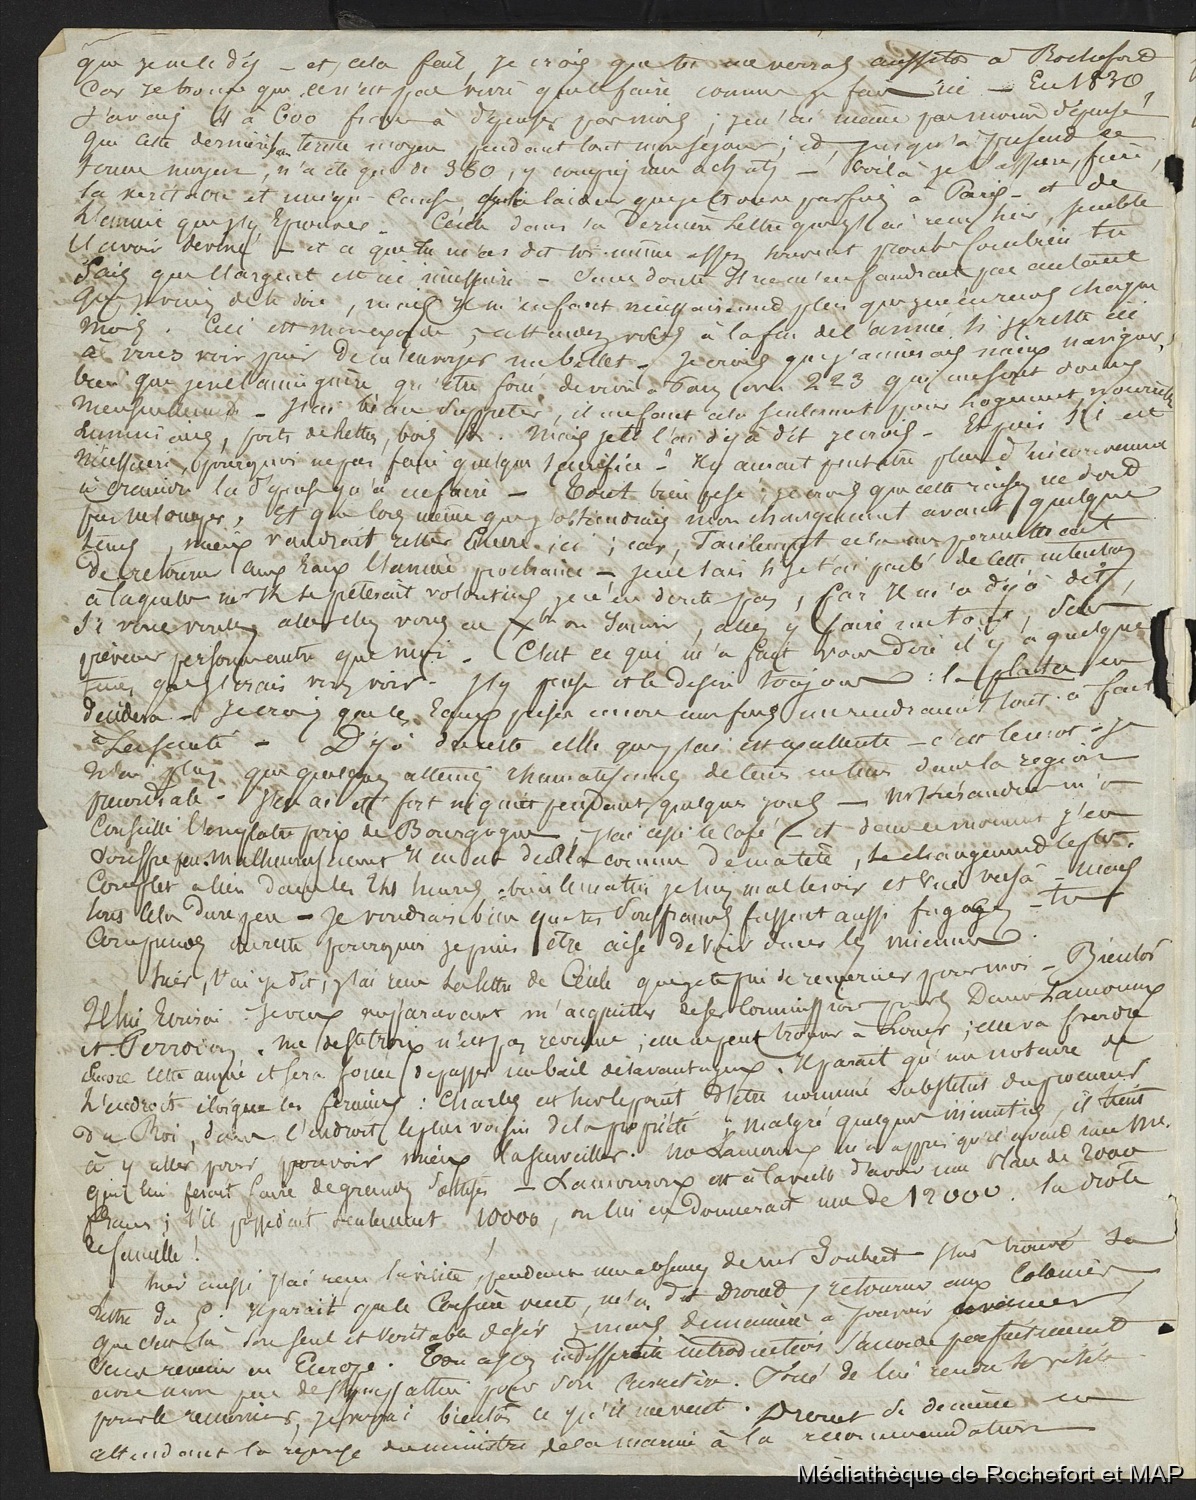 que je me le dis – et cela fait, je crois que tu me verras aussitôt à Rochefort
Car je trouve que ce n'est pas vivre que de faire comme je fais ici – En 1830
J'avais 4 à 600 francs à dépenser par mois ; je n'ai même pas moins dépensé
que cette dernière terme moyen pendant tout mon séjour ; et, jusqu'à présent ce
terme moyen, n'a été que de 380, y compris mes achats – Voilà je t'assure, frère,
la véritable et unique cause de la laideur que je trouve parfois à Paris – et de
l'ennui que j'y éprouve. Cécile dans sa dernière lettre que j'ai reçue hier, semble
l'avoir deviné – et ce que tu m'as dit toi-même assez souvent prouve combien tu
sais que l'argent est ici nécessaire – Sans doute il ne m'en faudrait pas autant
que je viens de te dire, mais il m'en faut nécessairement plus que je n'en reçois chaque
mois. Ceci est mon exorde, attendez-vous à la fin de l'année si je reste ici
à vous voir prier de m'envoyer un billet – Je crois que j'aimerais mieux naviguer,
bien que je n'aime guère, qu'être forcé de vivre à Paris avec 223 qui me sont donnés
mensuellement – J'ai beau supputer, il me faut cela seulement pour logement, nourriture
Luminaire, ports de lettres, bois &. Mais je te l'ai déjà dit je crois – Et puis s'il est
nécessaire, pourquoi ne pas faire quelque sacrifice ? Il y aurait peut-être plus d'inconvénient
à craindre la dépense qu'à en faire – Tout bien pesé, je crois que cette raison ne doit
pas m'éloigner, Et que lors même que j'obtiendrais mon changement avant quelque
temps, mieux vaudrait rester Encore ici ; car, facilement cela me permettrait
de retourner aux Eaux l'année prochaine – je ne sais si je t'ai parlé de cette intention
à laquelle mr K se prêterait volontiers je n'en doute pas, car Il m'a déjà dit,
Si vous voulez aller chez vous en Xbre ou Janvier, allez y faire un tour, sans
prévenir personne autre que moi – C'est ce qui m'a fait vous dire il y a quelque
tems que j'irais vous voir – J'y pense et le désire toujours : la plata en
décidera – Je crois que les Eaux prises encore une fois me rendraient tout à fait
La santé – Déjà du reste celle que j'ai est excellente – c'est le mot – je
n'ai plus que quelques atteintes rhumatismales de temps en temps dans la région
précordiale – J'en ai été fort inquiété pendant quelques jours – mr Kéraudren m'a
conseillé l'emplâtre poix de Bourgogne, j'ai cessé le café – et dans ce moment j'en
souffre peu. Malheureusement Il en est de cela comme de ma tête, le changement le plus
complet a lieu dans les 24 heures ; bien le matin je suis mal le soir et vice versâ – mais
tout cela dure peu – Je voudrais bien que tes souffrances fussent aussi fugaces – tu
comprends du reste pourquoi je puis être aise de voir durer les miennes.
Hier, t'ai-je dit, j'ai reçu la lettre de Cécile que je te prie de remercier pour moi – Bientôt
Je lui Ecrirai : je veux auparavant m'acquitter de ses commissions pour les Dames Lamoureux
et Perrociau. Me Defletroix n'est pas revenue ; elle ne peut trouver à louer ; elle va perdre
Encore cette année et sera forcée de passer un bail désavantageux. Il paraît qu'un notaire de
l'endroit éloigne les fermiers : Charles est sur le point d'être nommé Substitut du procureur
du Roi, dans l'endroit le plus voisin de la propriété ; malgré quelques inimitiés, il tient
à y aller pour pouvoir mieux la surveiller. Me Lamoureux m'a appris qu'il avait une Me.
qui lui ferait faire de grandes sottises – Lamoureux est à la veille d'avoir une Place de 2000
francs ; s'il possédait seulement 10000, on lui en donnerait une de 12000. La drôle
de famille !
Hier aussi j'ai reçu la visite, pendant une absence de mr Joubert. J'ai trouvé sa
lettre du 5. Il paraît que le Confrère veut, m'a dit Drouet, retourner aux Colonies,
que c'est là son seul et véritable désir, mais de manière à pouvoir avancer
sans revenir en Europe. Ton assez indifférente introduction s'accorde parfaitement
avec mon peu de sympathie pour son caractère. Forcé de lui rendre sa visite
pour le remercier, je saurai bientôt ce qu'il me veut. Drouet se démène en
attendant la réponse du ministre de la marine à la recommandation
Médiathèque de Rochefort et MAP